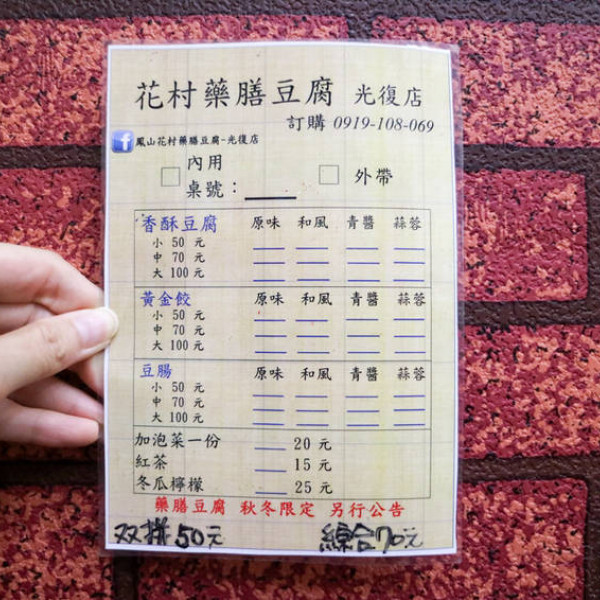 花村藥膳豆腐 光復店
訂購 0919-108-069
f 鳳山花村藥膳豆腐-光復店
□ 內用 □ 外帶
桌號：
香酥豆腐 原味 和風 青醬 蒜蓉
小 50 元
中 70 元
大 100 元
黃金餃 原味 和風 青醬 蒜蓉
小 50 元
中 70 元
大 100 元
豆腸 原味 和風 青醬 蒜蓉
小 50 元
中 70 元
大 100 元
加泡菜一份 20 元
紅茶 15 元
冬瓜檸檬 25 元
藥膳豆腐 秋冬限定 另行公告
双拼50元 綜合70元